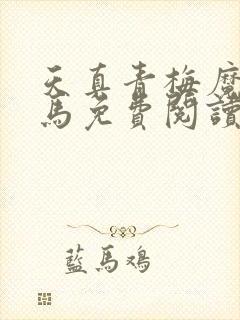 天真青梅魔
馬免費閱讀
藍馬鸡